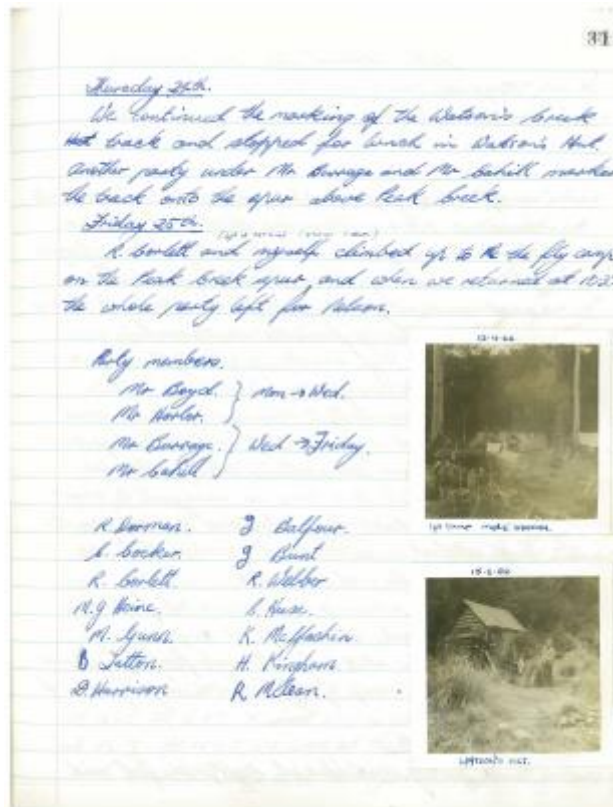 31
Thursday 24th.
We continued the marking of the Watson's Creek
Hut track and stopped for lunch in Watson's Hut.
Another party under Mr Burrage and Mr Cahill marked
the track onto the spur above Peak Creek.
Friday 25th.
R. Corlett and myself climbed up to the fly camp
on the Peak Creek spur, and when we returned at
the whole party left for Nelson.
Party members.
Mr Boyd. } Mon → Wed.
Mr Harlor.
Mr Burrage. } Wed → Friday.
Mr Cahill
R. Dorman. J Balfour.
C. Cocker. J Bunt
R. Corlett R. Webber
M.J Heine
M. Gunn. K.
B Tatton. H. Kingham
D. Harrison R McLean.
WATSON'S HUT.